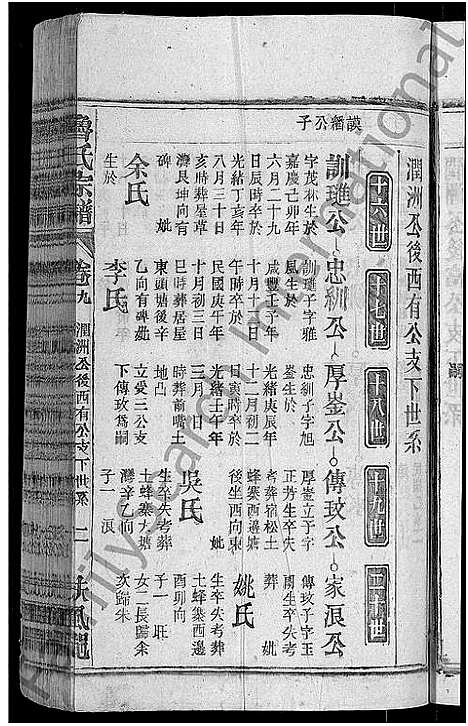 潤洲公後西有公支下世系
十六世 十七世 十八世 十九世 二十世
謨繙公子
訓璡公 忠紃公 厚崟公 傳玫公 家浪公
字茂林生於 訓璡子字雅 忠紃子字旭 厚崟立子字 傳玫子字玉
嘉慶己卯年 風生於 崟生於 正芳生卒失 閏生卒失考
六月二十九 咸豐壬子年 光緒庚辰年 考葬宿松土 葬
日辰時卒於 十月十三日 十二月初二 蜂寨西邊塘 妣
光緒丁亥年 午時卒於 日寅時卒於 後坐西向東 姚氏
八月三十日 民國庚午年 光緒壬午年 妣 生卒失考葬
亥時葬屋草 十月初三日 三月 日 吳氏 土蜂寨西邊
灣艮坤向有 巳時葬居屋 時葬前嘴土 生卒失考葬 酉卯向
碑 妣 東頭嘴後辛 地占 土蜂寨大塘 子一 旺
余氏 乙向有碑妣 立愛三公支 灣辛乙向 女二長歸余
生於 李氏 下傳玫爲嗣 子一 浪 次歸朱
魯氏宗譜 卷九 潤洲公後西有公支下世系 二 扶風郡
Family Search International